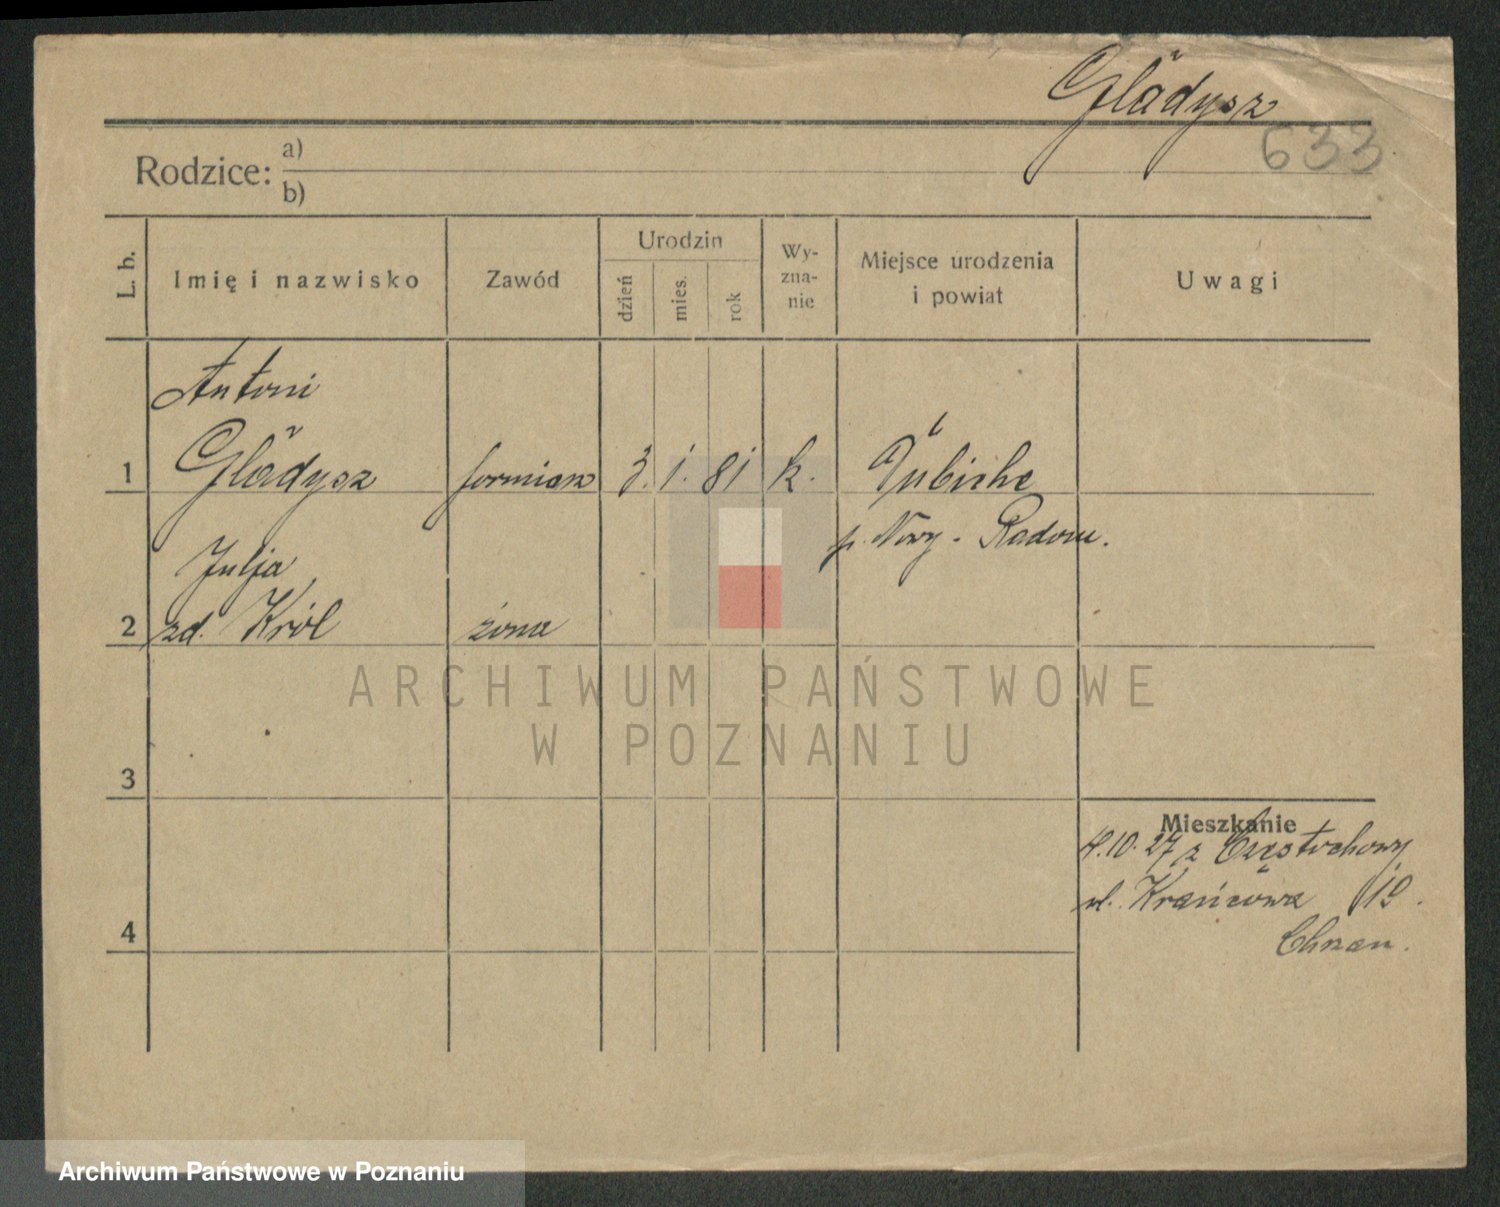 Gładysz
633
Rodzice: a)
b)
L. b.
Imię i nazwisko
Zawód
Urodzin
dzień
mies.
rok
Wy-
zna-
nie
Miejsce urodzenia
i powiat
Uwagi
Antoni
1 Gładysz formiarz 3. 1. 81 k.
p. Nowy-Radom.
Julja
2 zd. Król żona
3
Mieszkanie
4.10.27 z Częstochowy
ul. Krańcowa 19.
4
ARCHIWUM PAŃSTWOWE
W POZNANIU
Archiwum Państwowe w Poznaniu